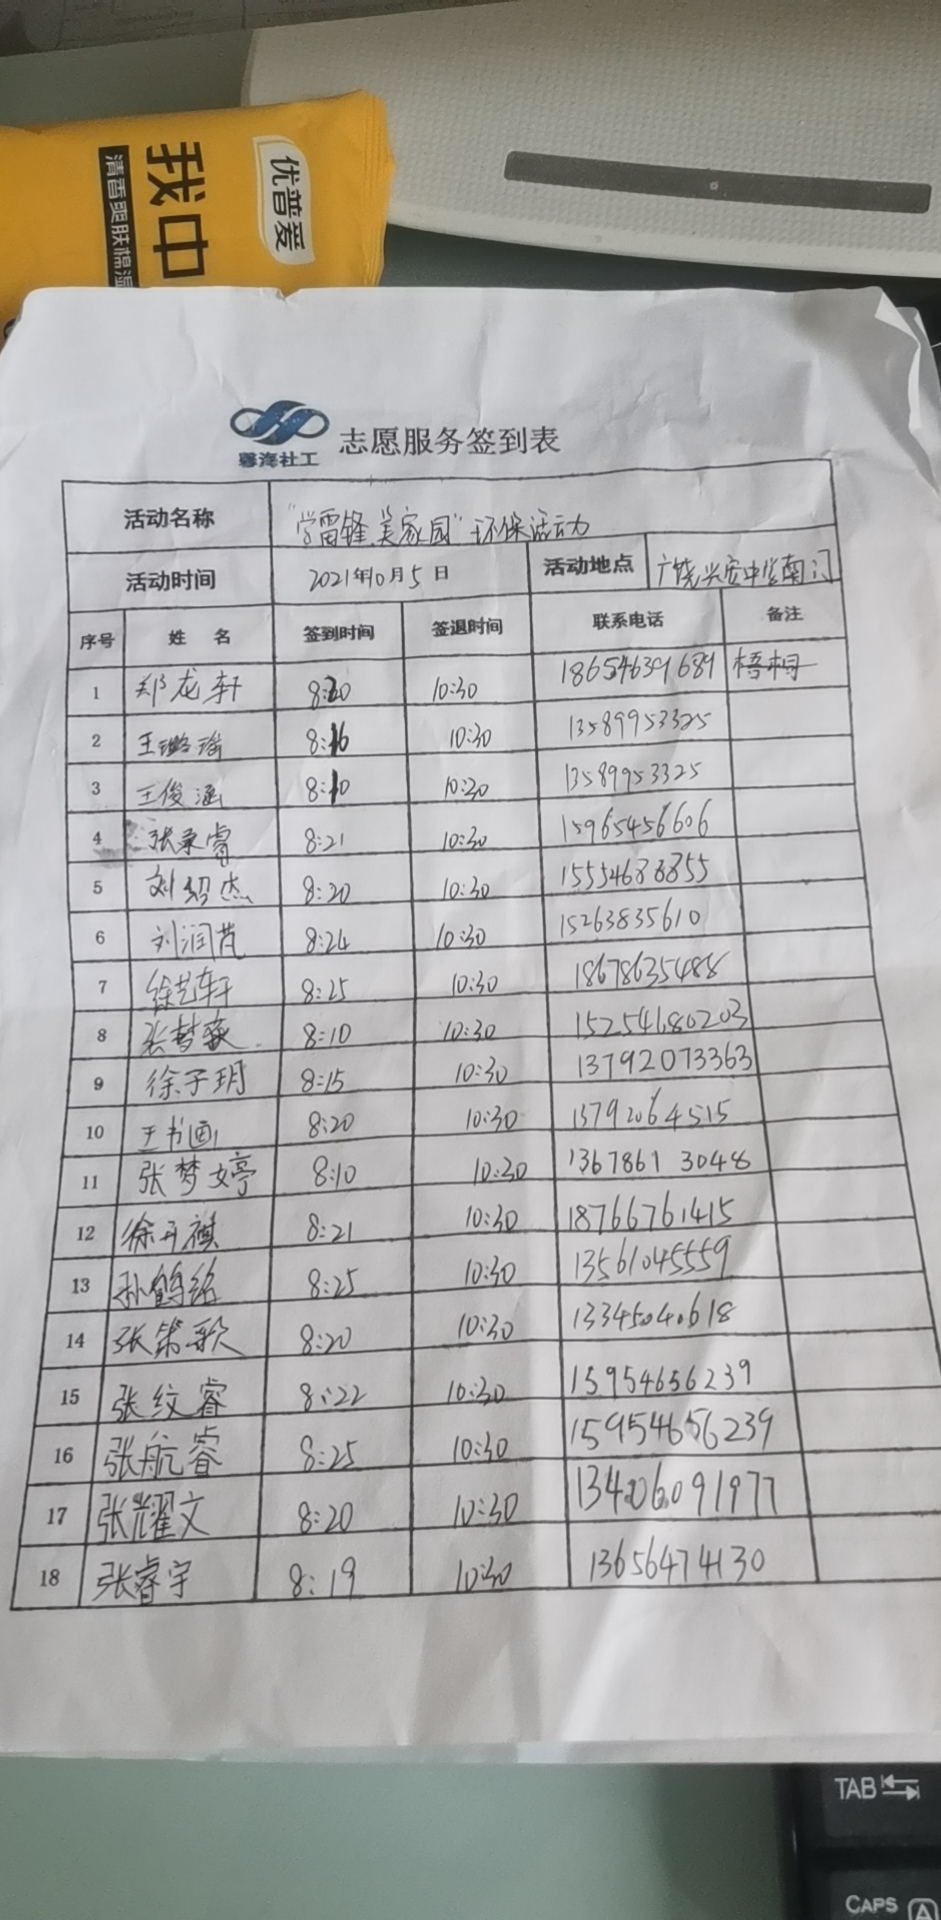 优普爱
我中
清香爽肤棉湿
馨海社工
志愿服务签到表
活动名称 "学雷锋 美家园"环保活动
活动时间 2021年10月5日 活动地点 广饶兴安中学南门
序号 姓名 签到时间 签退时间 联系电话 备注
1 郑龙轩 8:20 10:30 18654639689 梧桐
2 王璐瑜 8:16 10:30 13589953325
3 王俊涵 8:10 10:30 13589953325
4 张秉睿 8:21 10:30 15965456606
5 刘绍杰 8:20 10:30 15554683855
6 刘润芃 8:24 10:30 15263835610
7 徐艺轩 8:25 10:30 18678635488
8 张梦 8:10 10:30 15254680203
9 徐子玥 8:15 10:30 13792073363
10 王书画 8:20 10:30 13792064515
11 张梦婷 8:10 10:30 1367861 3048
12 徐 祺 8:21 10:30 18766761415
13 孙鹤铭 8:25 10:30 13561045559
14 张 歌 8:20 10:30 13345040618
15 张纹睿 8:22 10:30 15954656239
16 张航睿 8:25 10:30 15954656239
17 张耀文 8:20 10:30 13406091977
18 张睿宇 8:19 10:30 13656474130
TAB
CAPS A